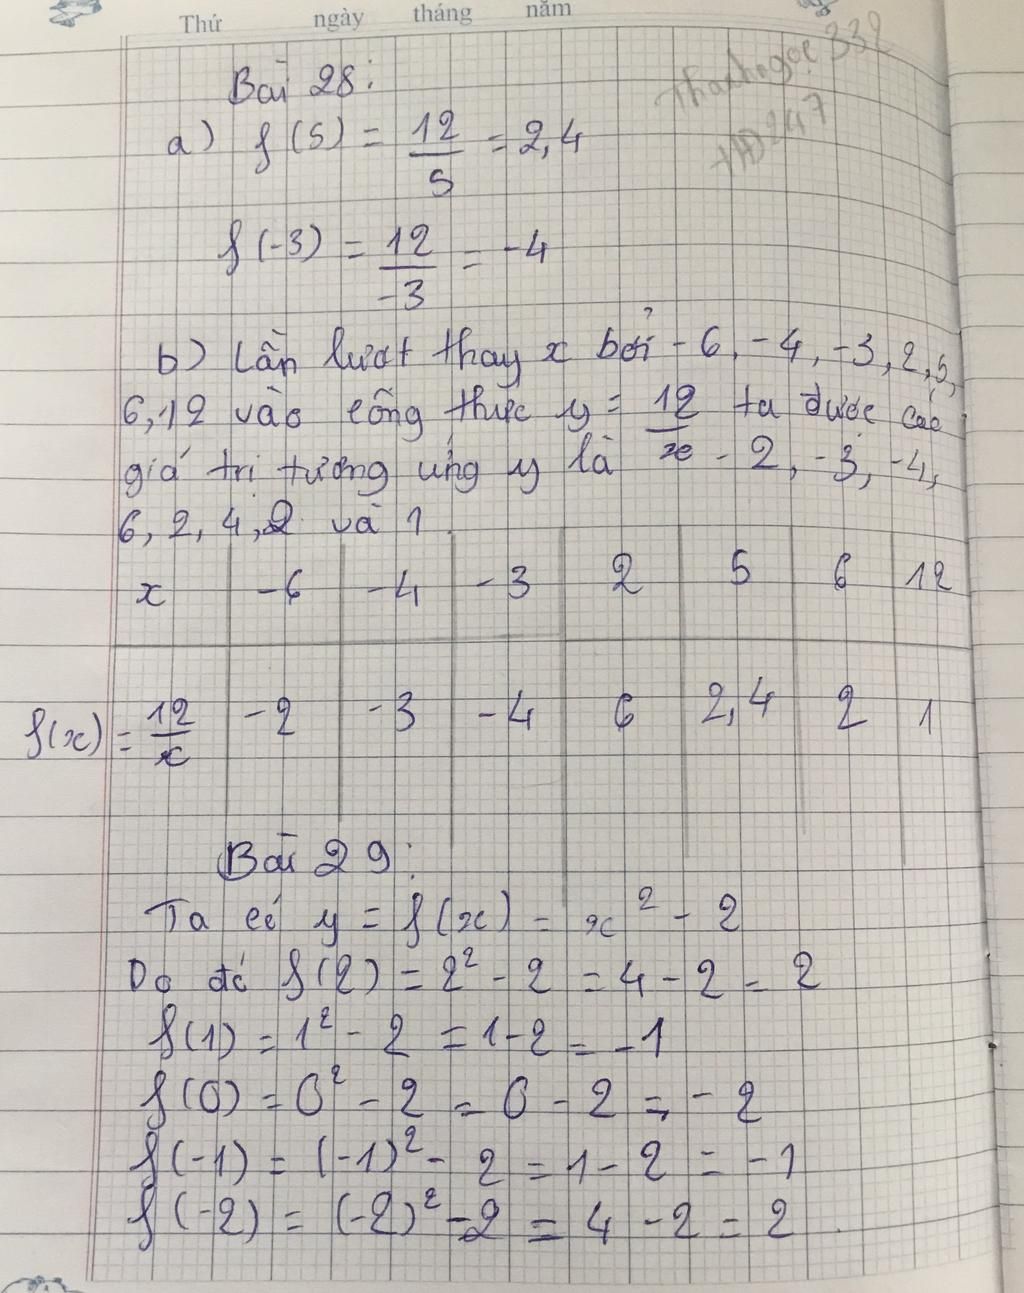 Thứ ngày tháng năm
Thanhngoc 332
HD247
Bài 28:
a) f(5) = 12/5 = 2,4
f(-3) = 12/-3 = -4
b) Lần lượt thay x bởi -6, -4, -3, 2, 5,
6, 12 vào công thức y = 12/x ta được các
giá trị tương ứng y là -2, -3, -4,
6, 2, 4, 2 và 1.
x -6 -4 -3 2 5 6 12
f(x) = 12/x -2 -3 -4 6 2,4 2 1
Bài 29:
Ta có y = f(x) = x² - 2
Do đó f(2) = 2² - 2 = 4 - 2 = 2
f(1) = 1² - 2 = 1 - 2 = -1
f(0) = 0² - 2 = 0 - 2 = -2
f(-1) = (-1)² - 2 = 1 - 2 = -1
f(-2) = (-2)² - 2 = 4 - 2 = 2